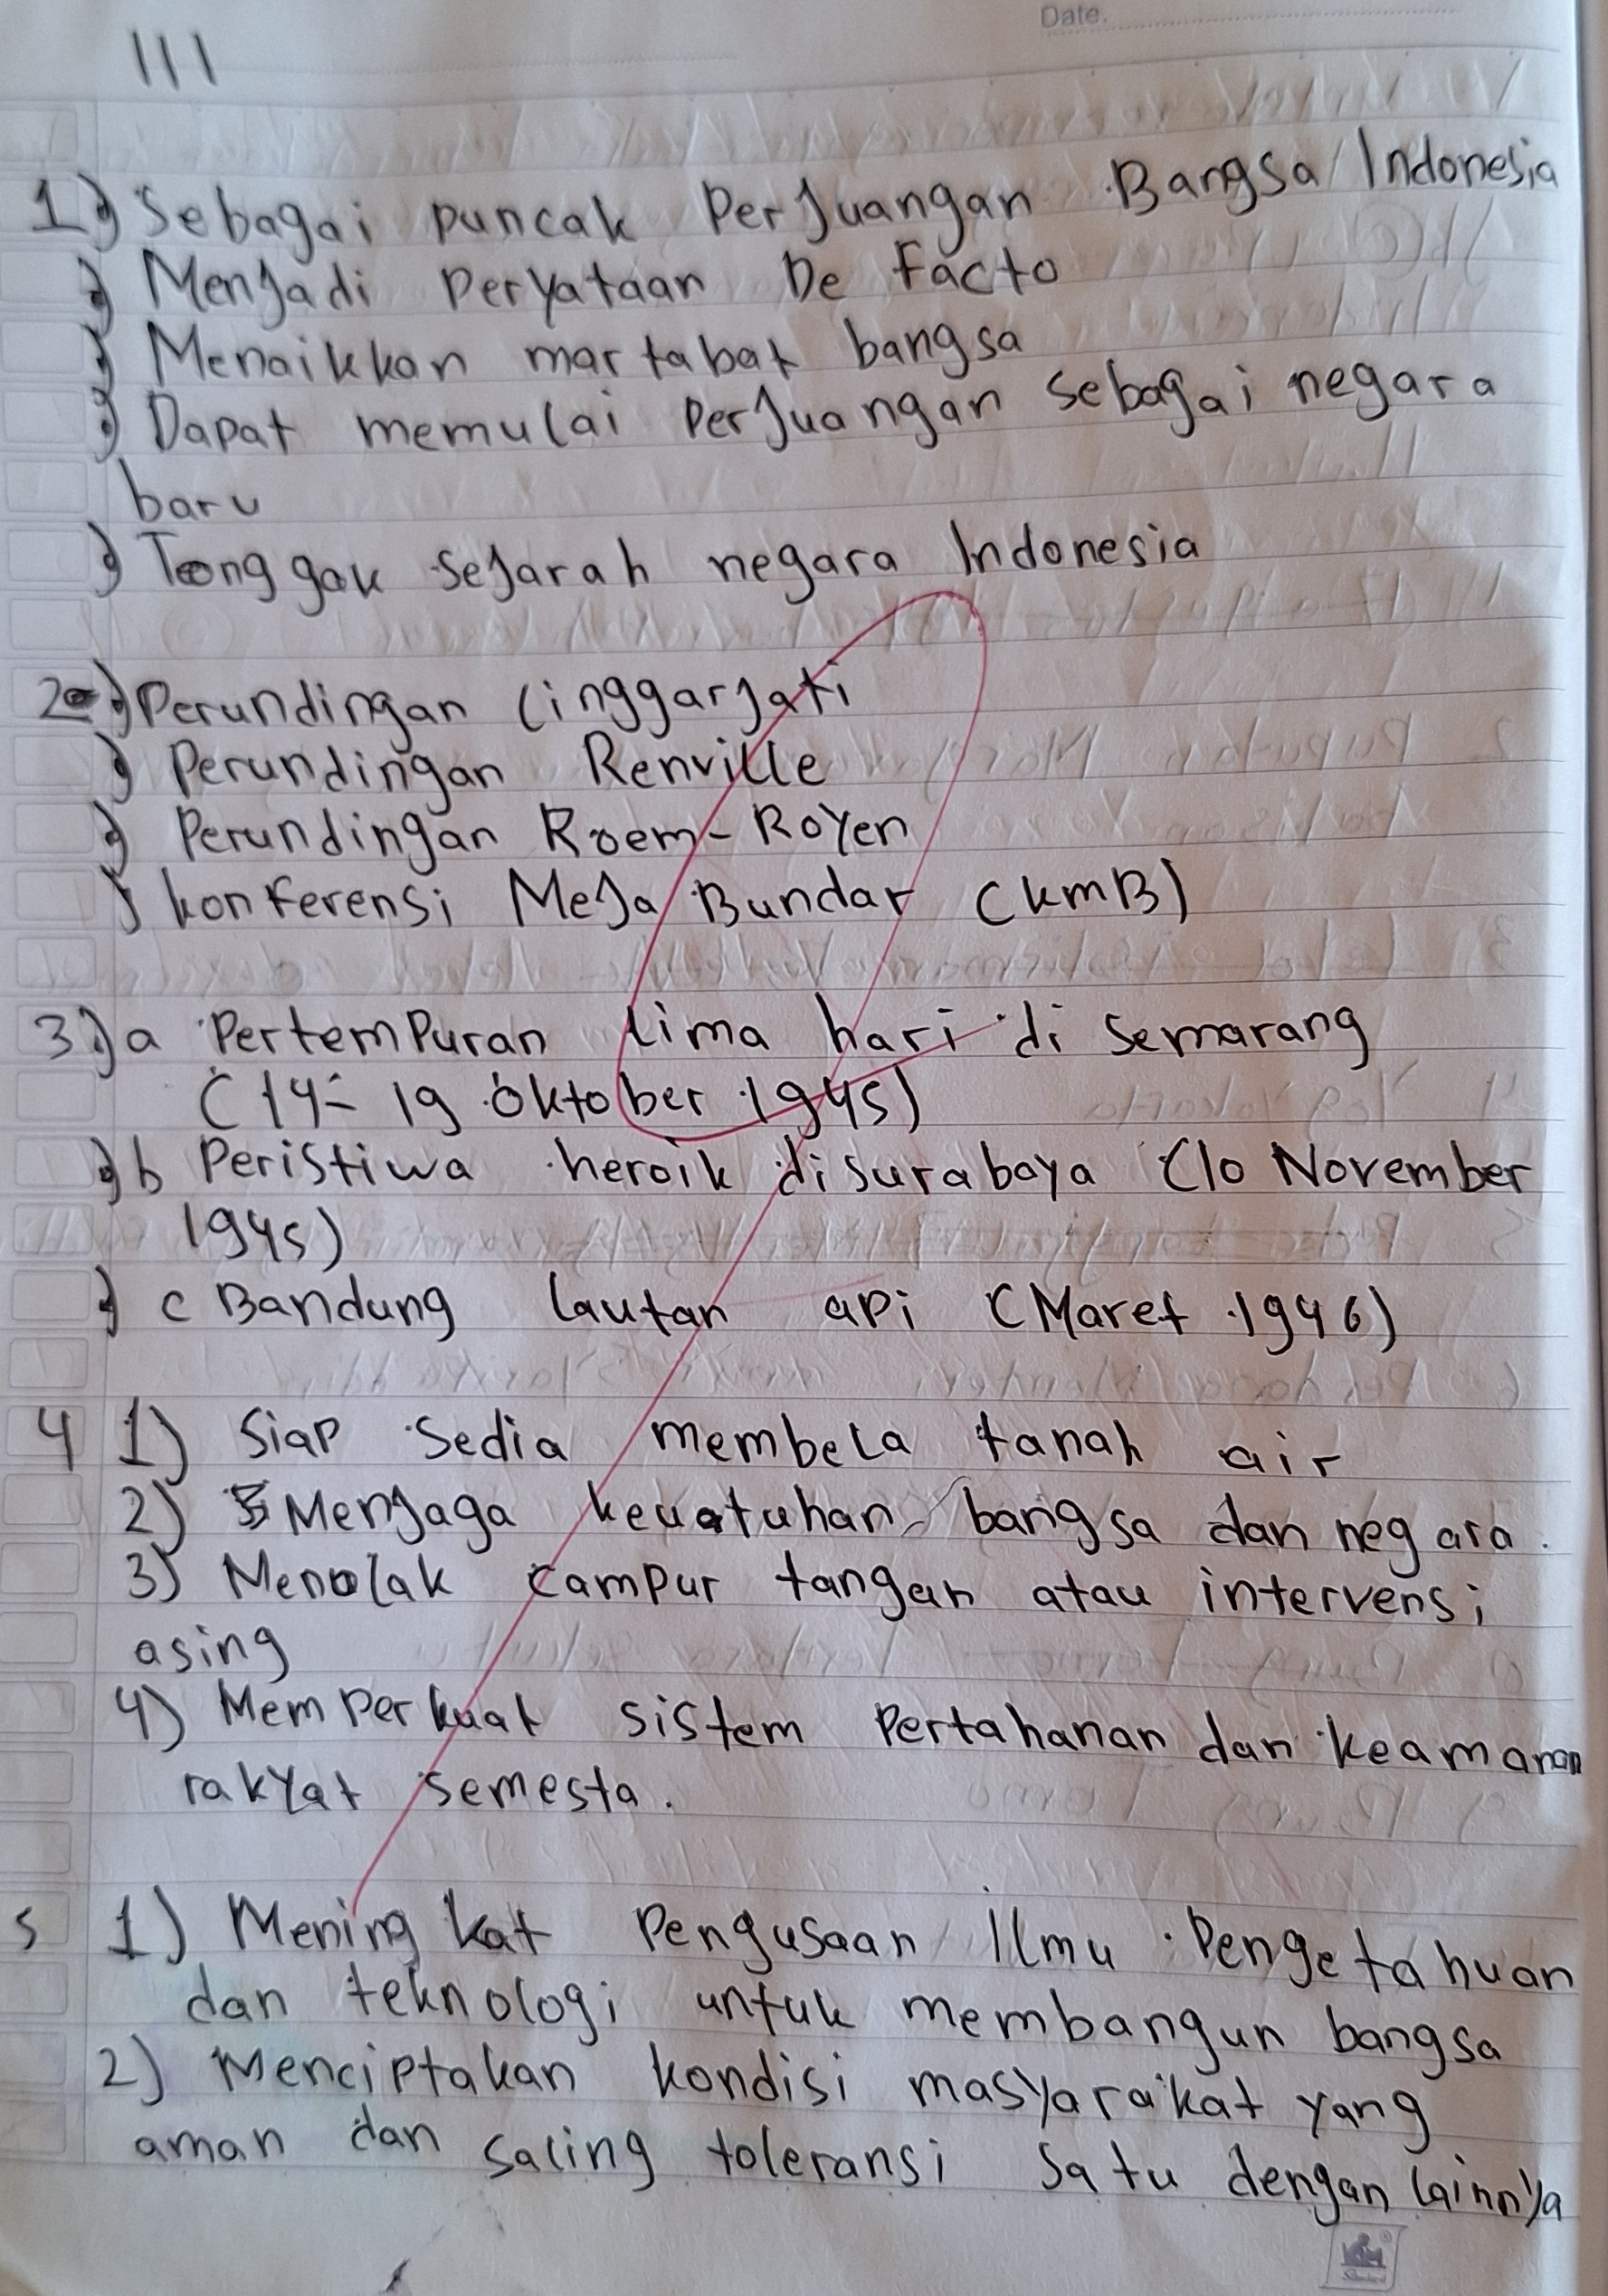 Date.
III
1) Sebagai puncak Perjuangan Bangsa Indonesia
) Menjadi Peryataan De Facto
) Menaikkan martabat bangsa
) Dapat memulai Perjuangan sebagai negara
baru
) Tonggak sejarah negara Indonesia
2) Perundingan linggarjati
) Perundingan Renville
) Perundingan Roem-Royen
) konferensi Meja Bundar (kmB)
3) a Pertempuran lima hari di Semarang
(14-19 Oktober 1945)
) b Peristiwa heroik disuraboya (10 November
1945)
) c Bandung lautan api (Maret 1946)
4 1) Siap Sedia membela tanah air
2) Menjaga keuatuhan bangsa dan negara.
3) Menolak campur tangan atau intervensi
asing
4) Memperkuat sistem Pertahanan dan keamanan
rakyat semesta.
5 1) Meningkat Pengusaan Ilmu Pengetahuan
dan teknologi untuk membangun bangsa
2) Menciptakan kondisi masyarakat yang
aman dan saling toleransi Satu dengan lainnya